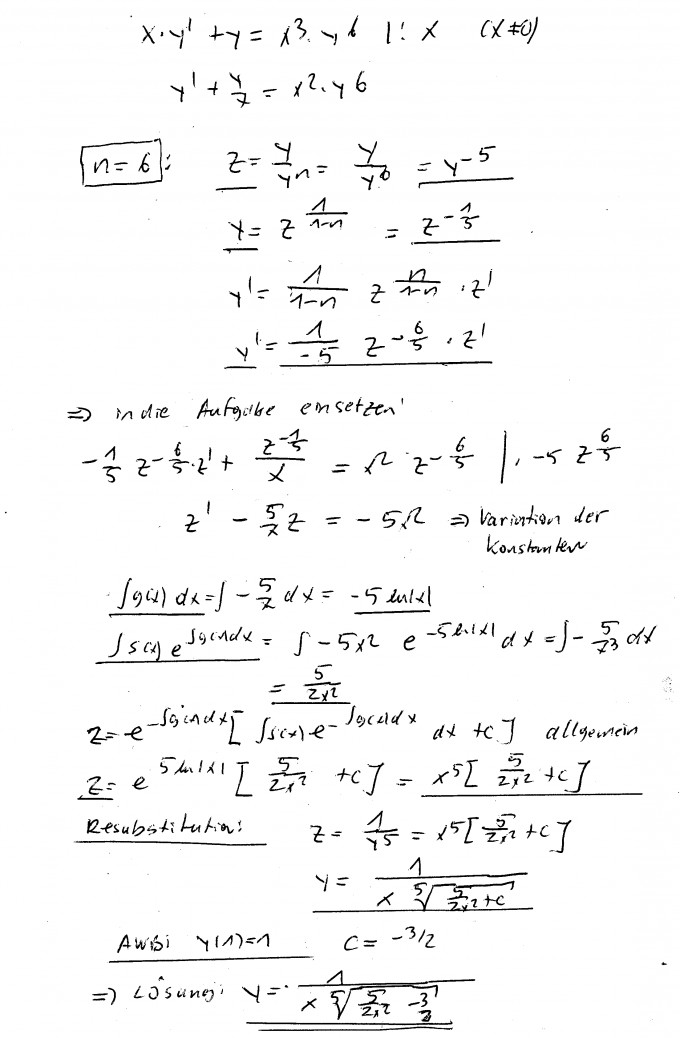 x·y' + y = x³·y⁶ |: x (x≠0)
y' + y/x = x²·y⁶
n=6: z = y/yⁿ = y/y⁶ = y⁻⁵
y = z^(1/(1-n)) = z^(-1/5)
y' = 1/(1-n) z^(n/(1-n)) · z'
y' = 1/(-5) z^(-6/5) · z'
⇒ in die Aufgabe einsetzen!
-1/5 z^(-6/5)·z' + z^(-1/5)/x = x² z^(-6/5) |· -5 z^(6/5)
z' - 5/x z = -5x² ⇒ Variation der
Konstanten
∫g(x) dx = ∫ -5/x dx = -5 ln|x|
∫s(x) e^(∫g(x)dx) = ∫ -5x² e^(-5 ln|x|) dx = ∫ -5/x³ dx
= 5/(2x²)
z = e^(-∫g(x)dx) [ ∫s(x) e^(-∫g(x)dx) dx + c ] allgemein
z = e^(5 ln|x|) [ 5/(2x²) + c ] = x⁵[ 5/(2x²) + c ]
Resubstitution: z = 1/y⁵ = x⁵[ 5/(2x²) + c ]
y = 1/(x ⁵√(5/(2x²) + c))
AWB: y(1)=1 C = -3/2
⇒ Lösung: y = 1/(x ⁵√(5/(2x²) - 3/2))